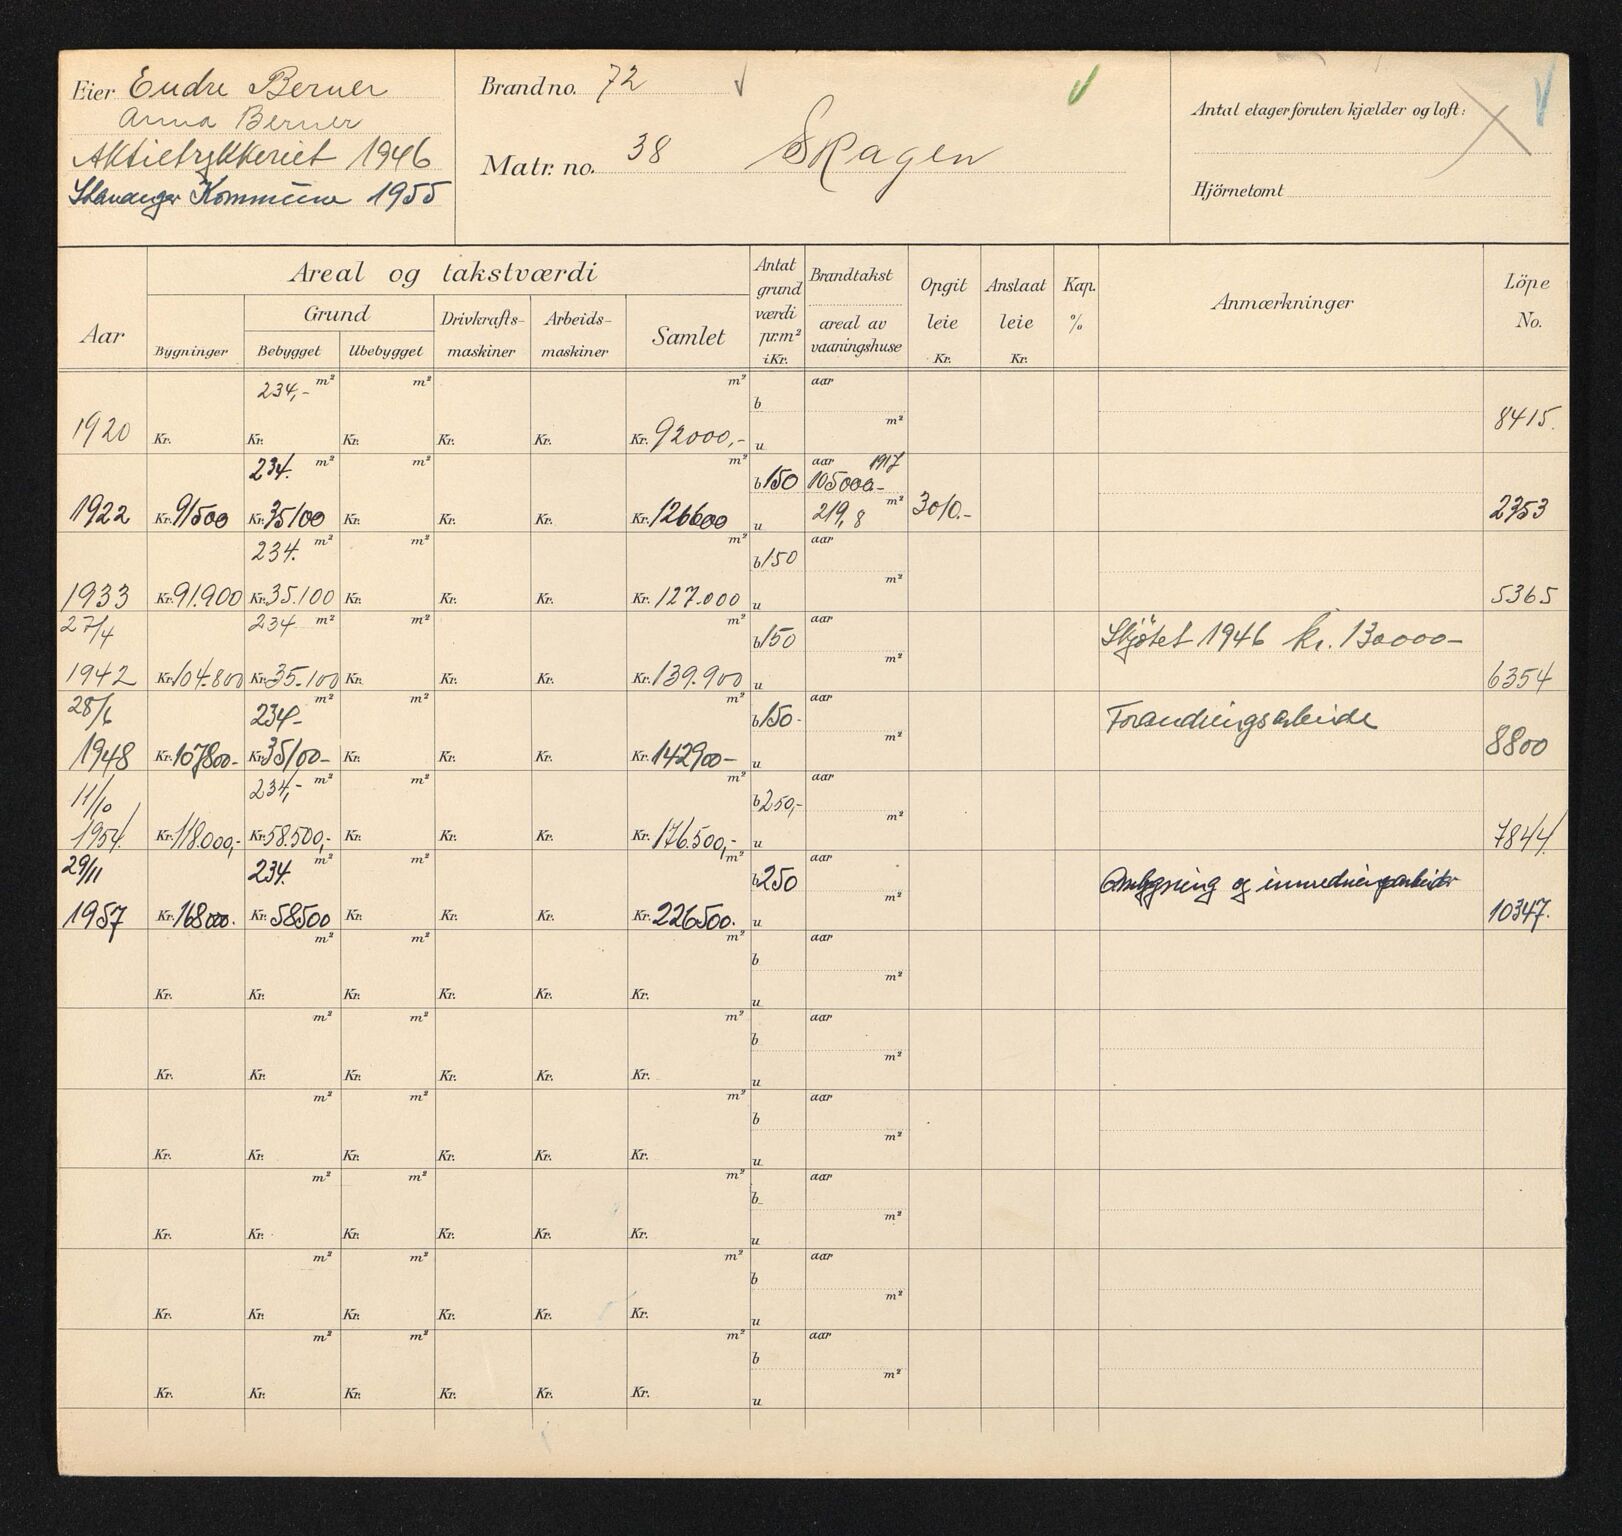 Eier Endre Berner
Anna Berner
Aktietrykkeriet 1946
Stavanger Kommune 1955
Brand no. 72
Matr. no. 38 Skagen
Antal etager foruten kjælder og loft:
Hjörnetomt
Aar
Areal og takstværdi
Bygninger
Grund
Bebygget Ubebygget
Drivkrafts-maskiner
Arbeids-maskiner
Samlet
Antat grund værdi pr. m² i Kr.
Brandtakst
areal av vaaningshuse
Opgit leie Kr.
Anslaat leie Kr.
Kap. %
Anmærkninger
Löpe No.
234,- m² m² m² aar
b
m²
1920 Kr. Kr. Kr. Kr. Kr. Kr. 92000,- u 8415.
234. m² m² m² b 150 aar 1917
105000.-
m²
1922 Kr. 91500 Kr. 35100 Kr. Kr. Kr. Kr. 126600 u 219,8 3010.- 2353
234. m² m² m² b 150 aar
m²
1933 Kr. 91.900 Kr. 35.100 Kr. Kr. Kr. Kr. 127.000 u 5365
27/4 234 m² m² m² b 150 aar Skjötet 1946 kr. 130000-
m²
1942 Kr. 104.800 Kr. 35.100 Kr. Kr. Kr. Kr. 139.900 u 6354
28/6 234- m² m² m² b 150- aar Forandringsarbeide
m²
1948 Kr. 107800- Kr. 35100- Kr. Kr. Kr. Kr. 142900- u 8800
11/10 234,- m² m² m² b 250,- aar
m²
1954 Kr. 118.000,- Kr. 58.500,- Kr. Kr. Kr. Kr. 176.500,- u 7844
29/11 234. m² m² m² b 250 aar Ombygning og innredningsarbeider
m²
1957 Kr. 168000. Kr. 58500 Kr. Kr. Kr. Kr. 226500. u 10347.
m² m² m² aar
b
m²
Kr. Kr. Kr. Kr. Kr. Kr. u
m² m² m² aar
b
m²
Kr. Kr. Kr. Kr. Kr. Kr. u
m² m² m² aar
b
m²
Kr. Kr. Kr. Kr. Kr. Kr. u
m² m² m² aar
b
m²
Kr. Kr. Kr. Kr. Kr. Kr. u
m² m² m² aar
b
m²
Kr. Kr. Kr. Kr. Kr. Kr. u
m² m² m² aar
b
m²
Kr. Kr. Kr. Kr. Kr. Kr. u